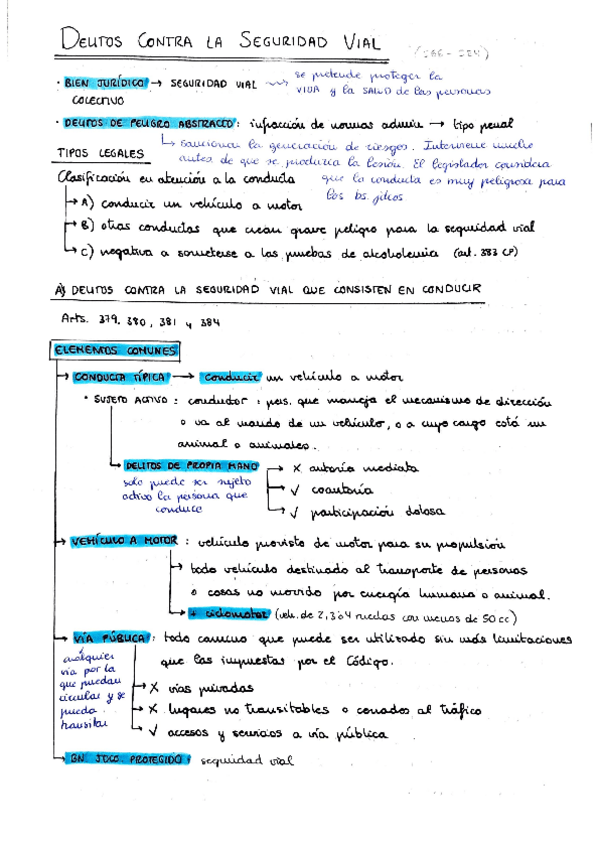 DELITOS CONTRA LA SEGURIDAD VIAL
· BIEN JURÍDICO → SEGURIDAD VIAL
COLECTIVO
se pretende proteger la
VIDA y la SALUD de las personas
· DELITOS DE PELIGRO ABSTRACTO: infracción de normas admin → tipo penal
sancionar la generación de riesgos. Interviene mucho
antes de que se produzca la lesión. El legislador considera
que la conducta es muy peligrosa para
los bs. jdcos
TIPOS LEGALES
Clasificación en atención a la conducta
A) conducir un vehículo a motor
B) otras conductas que crean grave peligro para la seguridad vial
C) negativa a someterse a las pruebas de alcoholemia (art. 383 CP)
A) DELITOS CONTRA LA SEGURIDAD VIAL QUE CONSISTEN EN CONDUCIR
Arts. 379, 380, 381 y 384
ELEMENTOS COMUNES
→ CONDUCTA TÍPICA → conducir un vehículo a motor
· SUJETO ACTIVO: conductor: pers. que maneja el mecanismo de dirección
o va al mando de un vehículo, o a cuyo cargo está un
animal o animales.
DELITOS DE PROPIA MANO
solo puede ser sujeto
activo la persona que
conduce
→ X autoría mediata
→ √ coautoría
→ √ participación dolosa
→ VEHÍCULO A MOTOR: vehículo provisto de motor para su propulsión
→ todo vehículo destinado al transporte de personas
o cosas no movido por energía humana o animal.
+ ciclomotor (veh. de 2, 3 ó 4 ruedas con menos de 50 cc)
→ VÍA PÚBLICA: todo camino que puede ser utilizado sin más limitaciones
que las impuestas por el Código.
cualquier
vía por la
que puedan
circular y se
pueda
transitar
→ X vías privadas
→ X lugares no transitables o cerrados al tráfico
→ √ accesos y servicios a vía pública
→ BN. JDCO. PROTEGIDO: seguridad vial